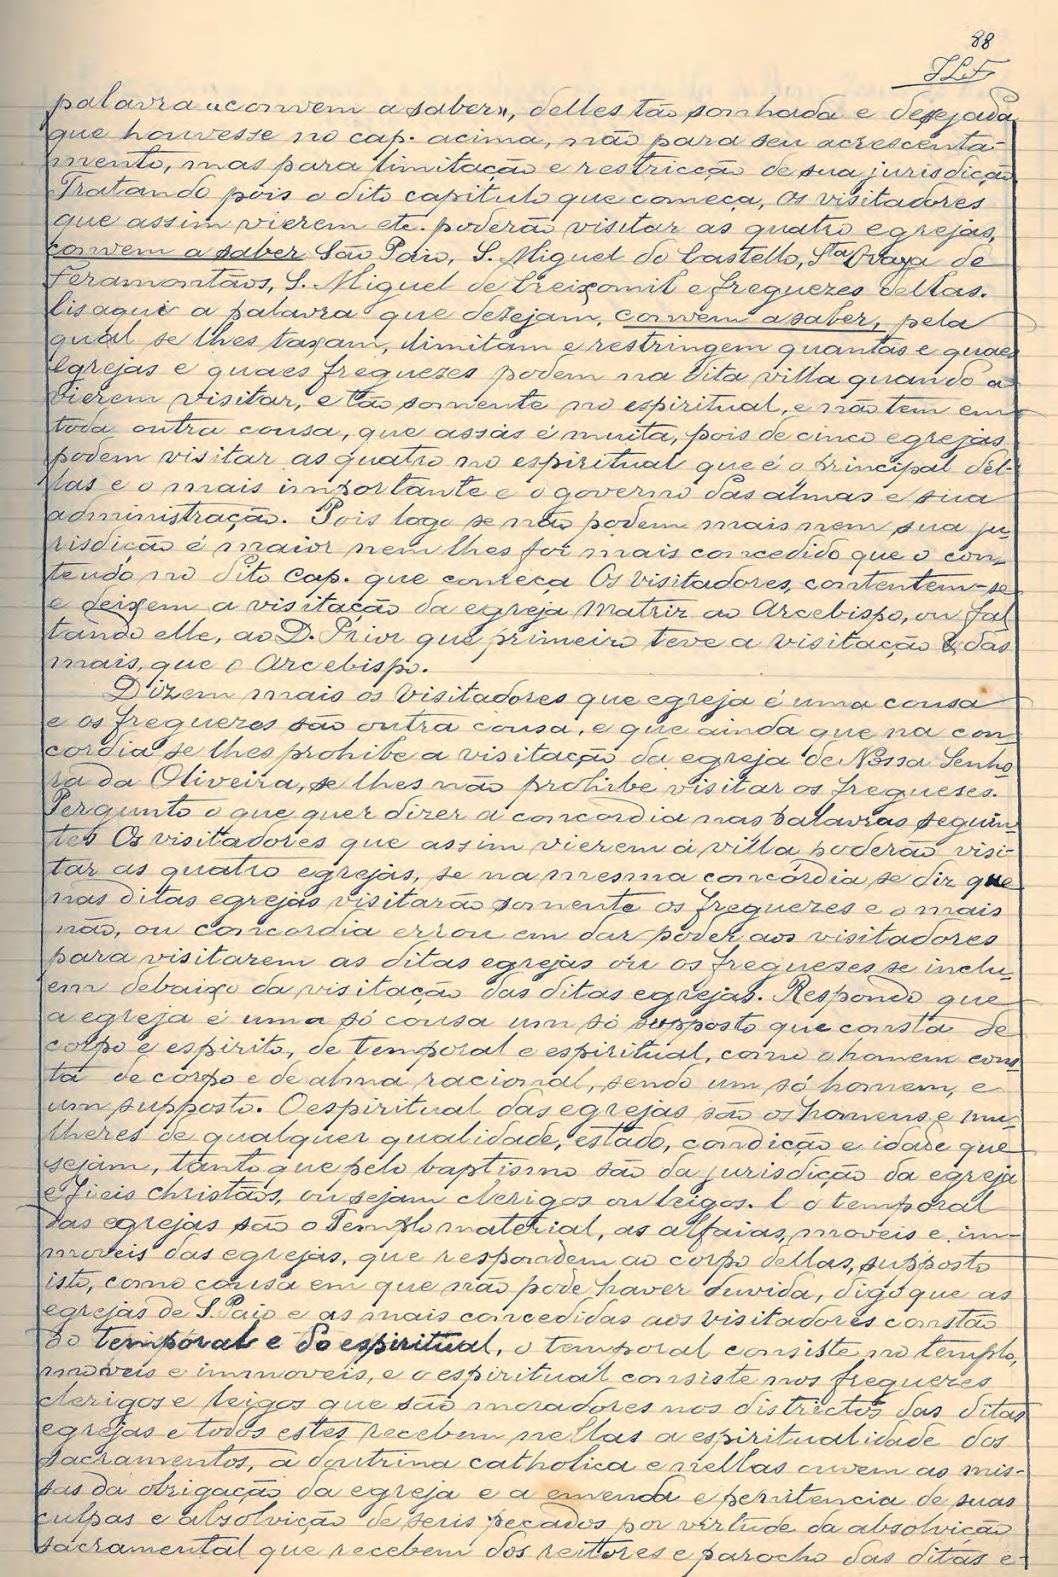 88
JLF
palavra «convem a saber», delles tão sonhada e desejada
que houvesse no cap. acima, não para seu acrescenta-
mento, mas para limitação e restricção de sua jurisdicção
Tratando pois o dito capitulo que começa, Os visitadores
que assim vierem etc. poderão visitar as quatro egrejas,
convem a saber São Paio, S. Miguel do Castello, Sta Ovaya de
Feramontãos, S. Miguel de Creixomil e freguezes dellas.
Eis aqui a palavra que desejam, convem a saber, pela
qual se lhes taxam, limitam e restringem quantas e quaes
egrejas e quaes freguezes podem na dita villa quando a
vierem visitar, e tão somente no espiritual, e não tem em
toda outra cousa, que assás é muita, pois de cinco egrejas
podem visitar as quatro no espiritual que é o principal del-
las e o mais importante e o governo das almas e sua
administração. Pois logo se não podem mais nem sua ju-
risdição é maior nem lhes foi mais concedido que o con-
teudo no dito Cap. que começa Os visitadores, contentem-se
e deixem a visitação da egreja Matriz ao Arcebispo, ou fal
tando elle, ao D. Prior que primeiro teve a visitação & das
mais, que o Arcebispo.
Dizem mais os Visitadores que egreja é uma cousa
e os freguezes são outra cousa, e que ainda que na con
cordia se lhes prohibe a visitação da egreja de Nossa Senho
ra da Oliveira, se lhes não prohibe visitar os freguezes.
Pergunto o que quer dizer a concordia nas palavras seguin-
tes Os visitadores que assim vierem á villa poderão visi-
tar as quatro egrejas, se na mesma concordia se diz que
nas ditas egrejas visitarão somente os freguezes e o mais
não, ou concordia errou em dar poder aos visitadores
para visitarem as ditas egrejas ou os freguezes se inclu-
em debaixo da visitação das ditas egrejas. Respondo que
a egreja é uma só cousa um só supposto que consta de
corpo e espirito, de temporal e espiritual, como o homem cons
ta de corpo e de alma racional, sendo um só homem, e
um supposto. O espiritual das egrejas são os homens e mu-
lheres de qualquer qualidade, estado, condição e idade que
sejam, tanto que pelo baptismo são da jurisdição da egreja
e fieis christãos, ou sejam clerigos ou leigos. E o temporal
das egrejas são o Templo material, as alfaias, moveis e im-
moveis das egrejas, que respondem ao corpo dellas, supposto
isto, como cousa em que não pode haver duvida, digo que as
egrejas de S. Paio e as mais concedidas aos visitadores constão
do temporal e do espiritual, o temporal consiste no templo,
moveis e immoveis, e o espiritual consiste nos freguezes
clerigos e leigos que são moradores nos districtos das ditas
egrejas e todos estes recebem nellas a espiritualidade dos
sacramentos, a doutrina catholica e nellas ouvem as mis-
sas da obrigação da egreja e a emenda e penitencia de suas
culpas e absolvição de seus peccados por virtude da absolvição
sacramental que recebem dos reitores e parocho das ditas e-